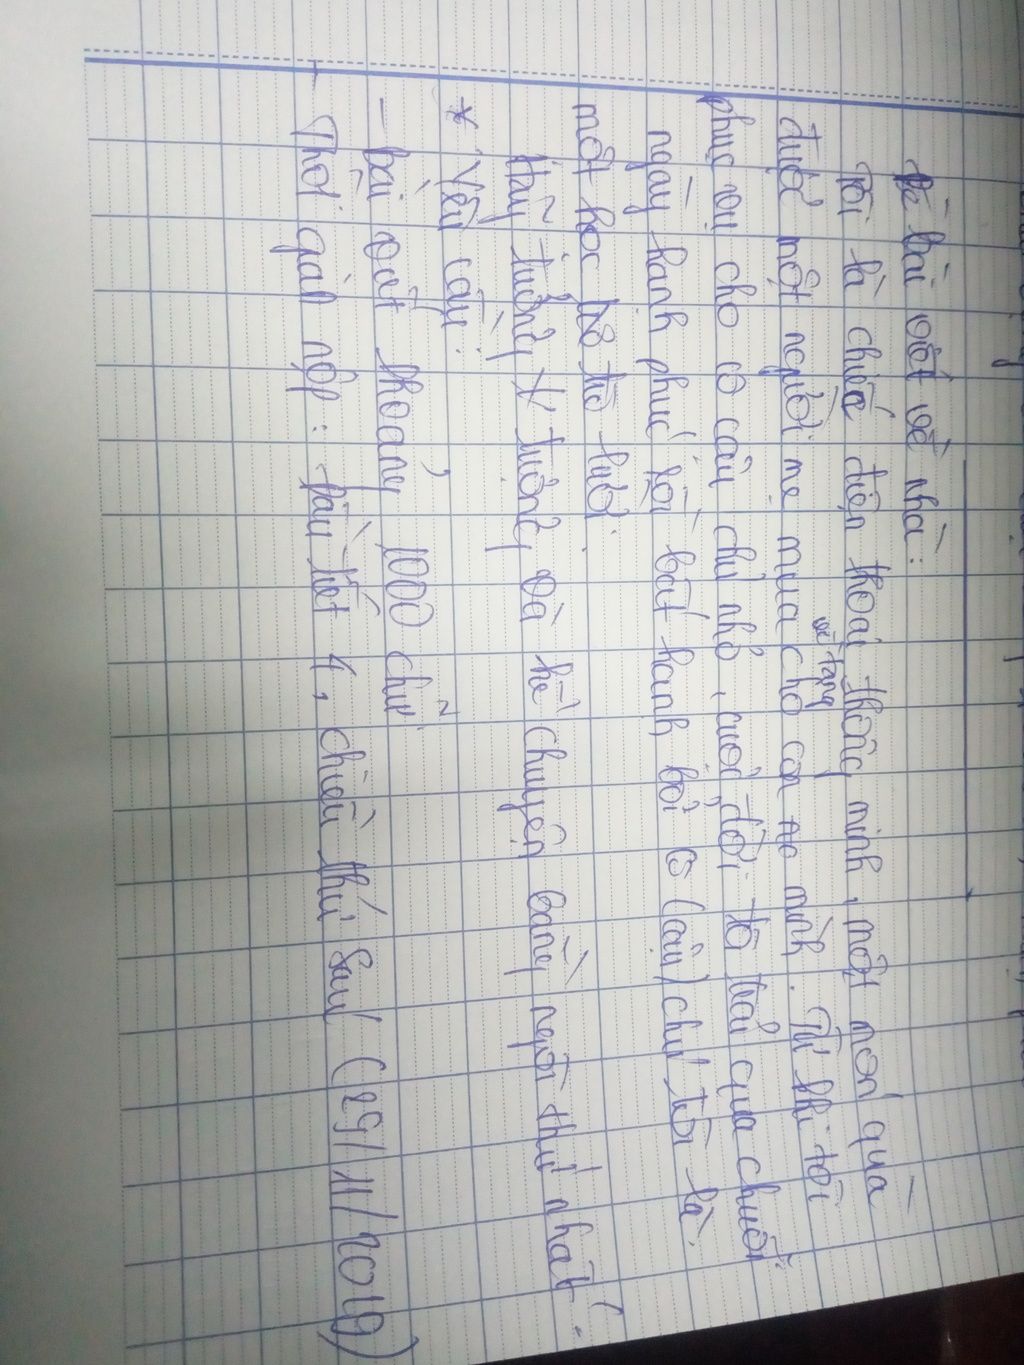 Đề bài viết về nhà:
Tôi là chiếc điện thoại thông minh, một món quà
được một người mẹ mua về tặng cho con mình. Từ khi tôi
phục vụ cho cô cậu chủ nhỏ, cuộc đời tôi trải qua chuỗi
ngày hạnh phúc lẫn bất hạnh bởi cô (cậu) chủ tôi là
một học trò lười.
Hãy tưởng tượng và kể chuyện bằng ngôi thứ nhất.
* Yêu cầu:
- bài viết khoảng 1000 chữ
- Thời gian nộp: đầu tiết 4, chiều thứ sáu (29/11/2019)